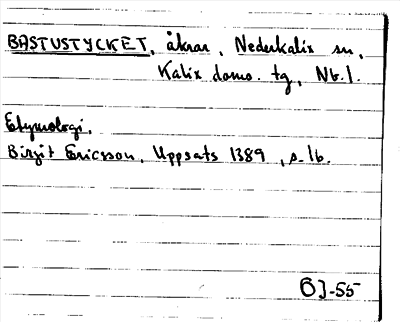 BASTUSTYCKET, åkrar, Nederkalix sn,
Kalix doms. tg, Nb.l.
Etymologi,
Birgit Ericsson, Uppsats 1389, s. 16.
BJ-55